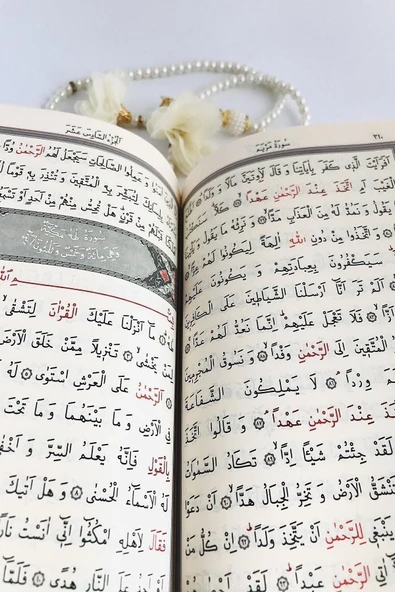 ٣١٠
سُورَةُ مَرْيَمَ
اَفَرَاَيْتَ الَّذٖى كَفَرَ بِاٰيَاتِنَا وَقَالَ لَاُوتَيَنَّ مَالًا وَوَلَدًا
الْغَيْبَ اَمِ اتَّخَذَ عِنْدَ الرَّحْمٰنِ عَهْدًا كَلَّا
يَقُولُ وَنَمُدُّ لَهُ مِنَ الْعَذَابِ مَدًّا وَنَرِثُهُ مَا يَقُولُ
وَاتَّخَذُوا مِنْ دُونِ اللّٰهِ اٰلِهَةً لِيَكُونُوا لَهُمْ
سَيَكْفُرُونَ بِعِبَادَتِهِمْ وَيَكُونُونَ عَلَيْهِمْ
اَلَمْ تَرَ اَنَّا اَرْسَلْنَا الشَّيَاطٖينَ عَلَى الْكَافِرٖينَ
اَزًّا فَلَا تَعْجَلْ عَلَيْهِمْ اِنَّمَا نَعُدُّ لَهُمْ عَدًّا
الْمُتَّقٖينَ اِلَى الرَّحْمٰنِ وَفْدًا وَنَسُوقُ الْمُجْرِمٖينَ
وِرْدًا لَا يَمْلِكُونَ الشَّفَاعَةَ
عِنْدَ الرَّحْمٰنِ عَهْدًا وَقَالُوا اتَّخَذَ
لَقَدْ جِئْتُمْ شَيْئًا اِدًّا تَكَادُ السَّمٰوَاتُ
وَتَنْشَقُّ الْاَرْضُ وَتَخِرُّ الْجِبَالُ هَدًّا اَنْ دَعَوْا
يَنْبَغٖى لِلرَّحْمٰنِ اَنْ يَتَّخِذَ وَلَدًا اِنْ كُلُّ مَنْ
اٰتِى الرَّحْمٰنِ عَبْدًا لَقَدْ
اَلْجُزْءُ السَّادِسَ عَشَرَ
وَعَمِلُوا الصَّالِحَاتِ سَيَجْعَلُ لَهُمُ الرَّحْمٰنُ وُدًّا
بِلِسَانِكَ لِتُبَشِّرَ بِهِ الْمُتَّقٖينَ وَتُنْذِرَ بِهٖ قَوْمًا
قَبْلَهُمْ مِنْ قَرْنٍ هَلْ تُحِسُّ مِنْهُمْ مِنْ اَحَدٍ اَوْ تَسْمَعُ
سُورَةُ طٰهٰ مَكِّيَّةٌ
وَهِىَ مِائَةٌ وَخَمْسٌ وَثَلَاثُونَ اٰيَةً
مَا اَنْزَلْنَا عَلَيْكَ الْقُرْاٰنَ لِتَشْقٰى
لِمَنْ يَخْشٰى تَنْزٖيلًا مِمَّنْ خَلَقَ الْاَرْضَ
اَلرَّحْمٰنُ عَلَى الْعَرْشِ اسْتَوٰى
فِى الْاَرْضِ وَمَا بَيْنَهُمَا وَمَا تَحْتَ
بِالْقَوْلِ فَاِنَّهُ يَعْلَمُ السِّرَّ وَاَخْفٰى
لَهُ الْاَسْمَاءُ الْحُسْنٰى وَهَلْ اَتٰيكَ
فَقَالَ لِاَهْلِهِ امْكُثُوا اِنّٖى اٰنَسْتُ نَارًا
عَلَى النَّارِ هُدًى فَلَمَّا